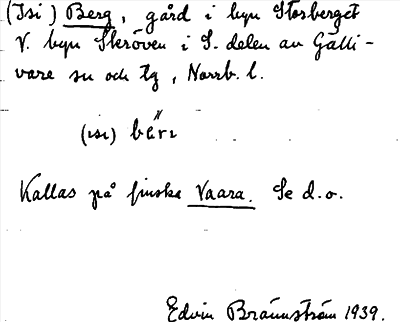 (Isi) Berg, gård i byn Storberget
V. byn Skröven i S. delen av Gälli-
vare sn och tg, Norrb. l.
(isi) bärı
Kallas på finska Vaara. Se d.o.
Edvin Brännström 1939.